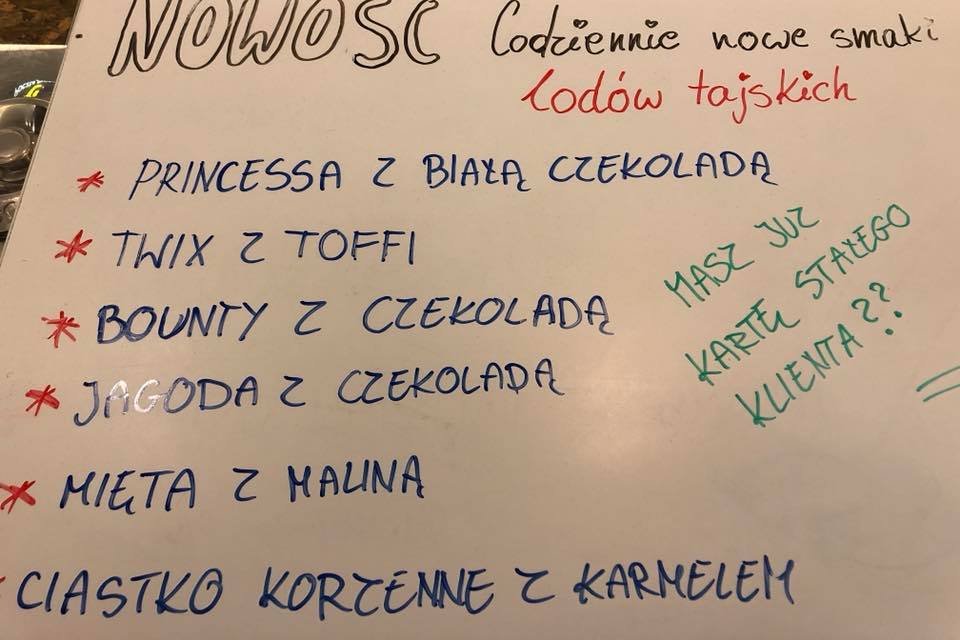 NOWOŚĆ Codziennie nowe smaki
lodów tajskich
* PRINCESSA Z BIAŁĄ CZEKOLADĄ
* TWIX Z TOFFI
* BOUNTY Z CZEKOLADĄ
* JAGODA Z CZEKOLADĄ
* MIĘTA Z MALINĄ
* CIASTKO KORZENNE Z KARMELEM
MASZ JUŻ
KARTĘ STAŁEGO
KLIENTA ??